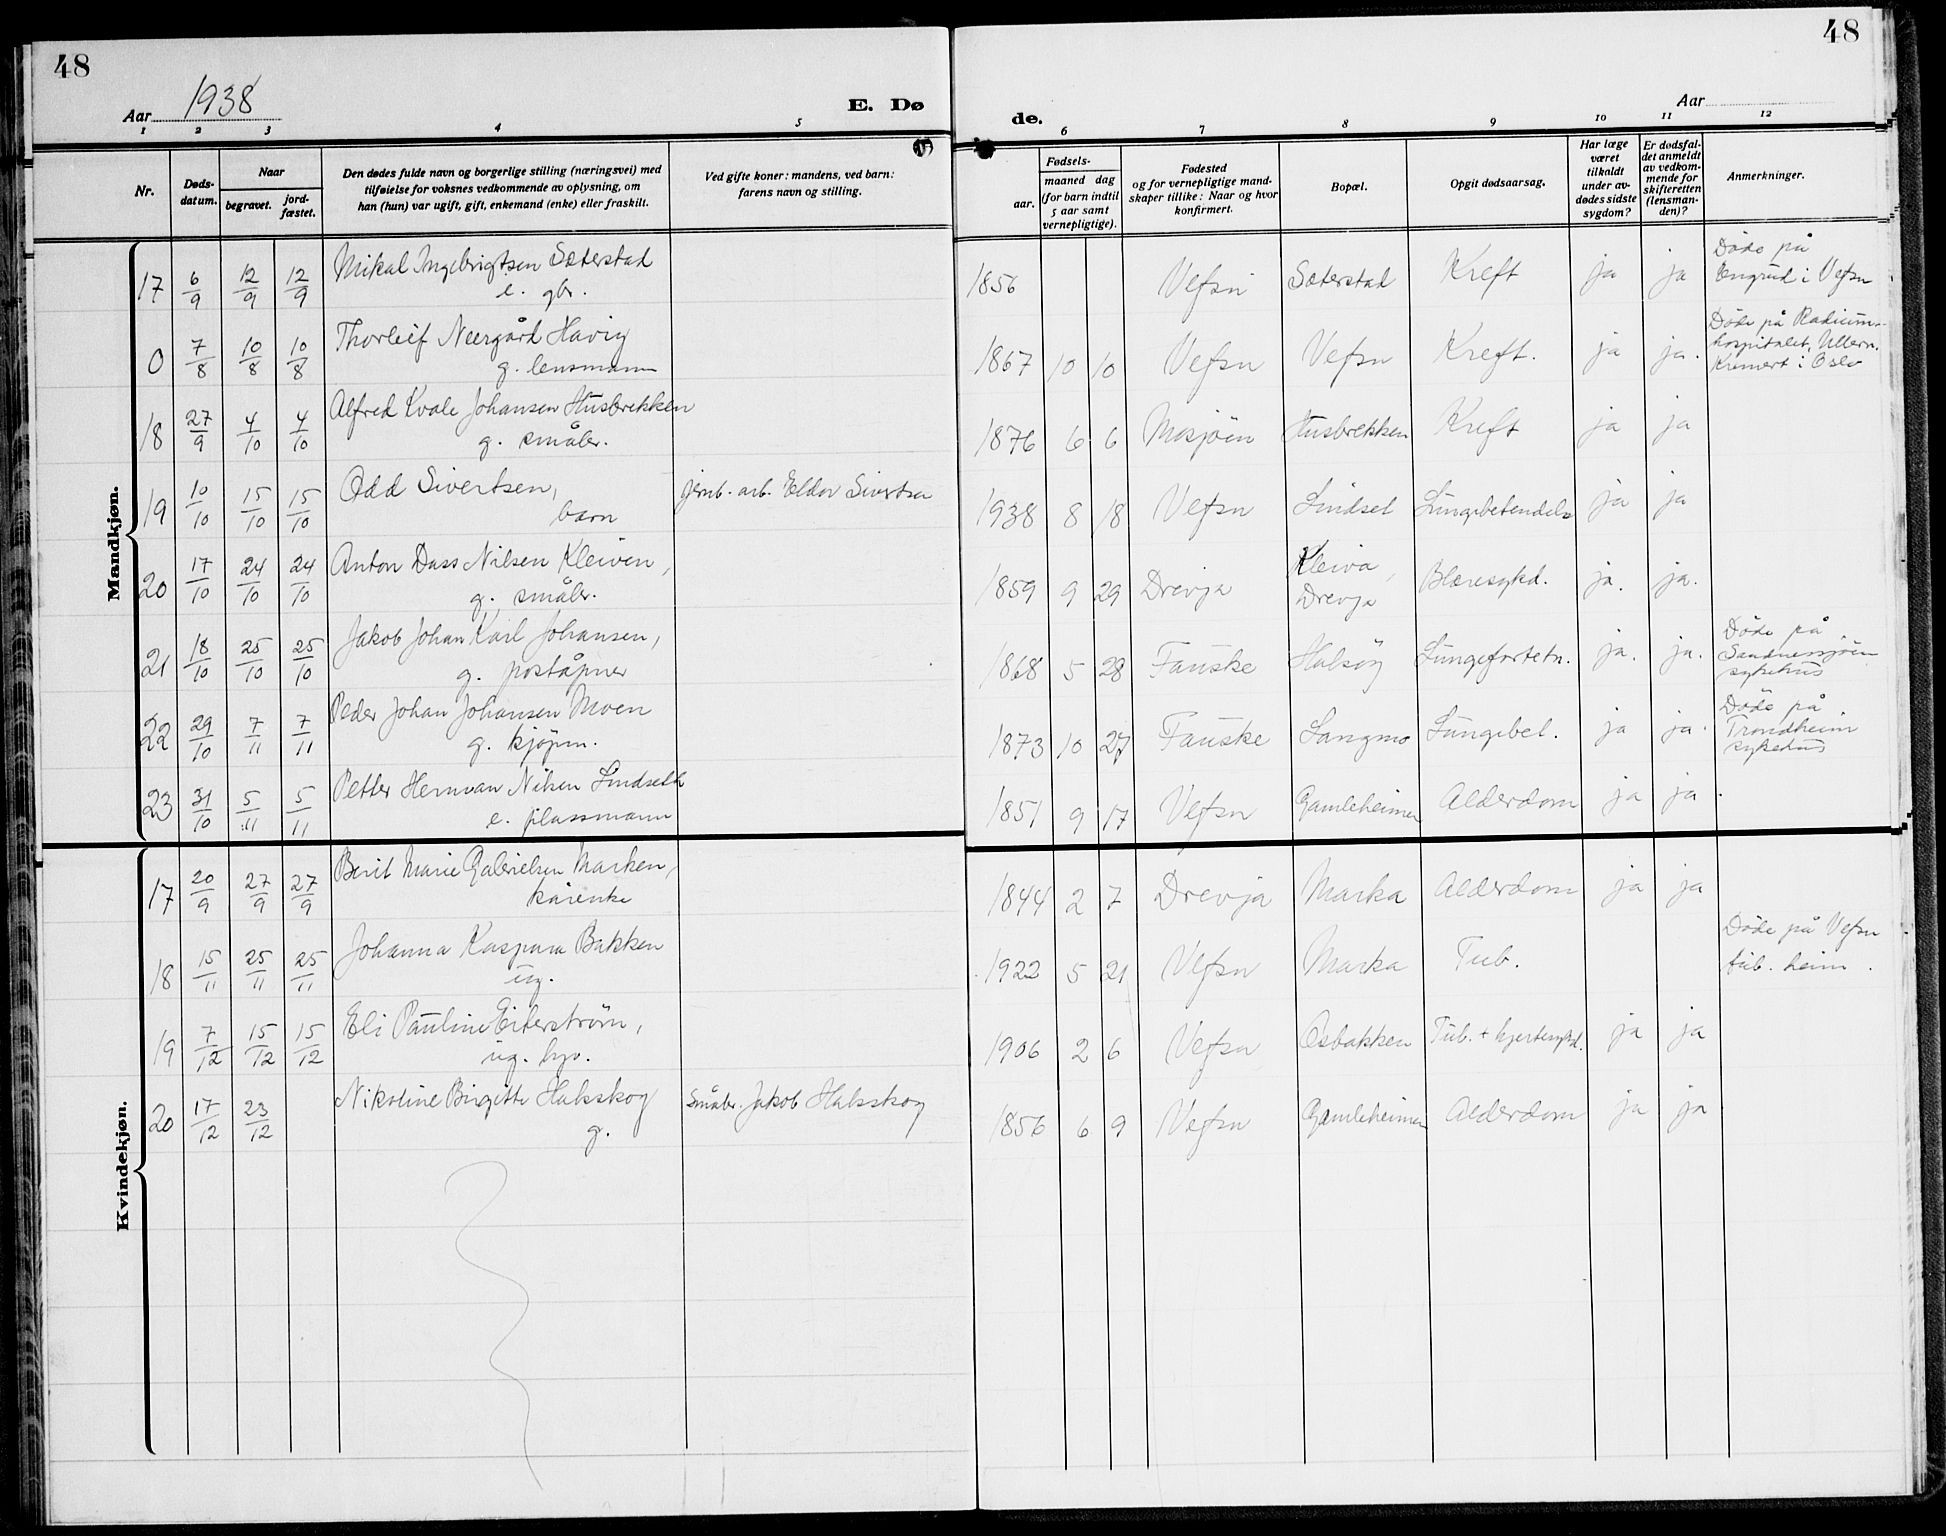 48
48
Aar 1938
E. Dø
de.
Aar
1 2 3 4 5 6 7 8 9 10 11 12
Nr.
Døds-
datum.
Naar
begravet.
jord-
fæstet.
Den dødes fulde navn og borgerlige stilling (næringsvei) med
tilføielse for voksnes vedkommende av oplysning, om
han (hun) var ugift, gift, enkemand (enke) eller fraskilt.
Ved gifte koner: mandens, ved barn:
farens navn og stilling.
Fødsels-
aar.
maaned dag
(for barn indtil
5 aar samt
vernepligtige).
Fødested
og for vernepligtige mand-
skaper tillike: Naar og hvor
konfirmert.
Bopæl.
Opgit dødsaarsag.
Har læge
været
tilkaldt
under av-
dødes sidste
sygdom?
Er dødsfal-
det anmeldt
av vedkom-
mende for
skifteretten
(lensman-
den)?
Anmerkninger.
Mandkjøn.
17 6/9 12/9 12/9 Mikal Ingebrigtsen Sæterstad
e. gbr.
1856 Vefsn Sæterstad Kreft ja ja
Døde på
Engrud i Vefsn
0 7/8 10/8 10/8 Thorleif Neergård Havig
g. lensmann
1867 10 10 Vefsn Vefsn Kreft. ja ja.
Døde på Radiums-
hospitalet, Ullern.
Kremert i Oslo
18 27/9 4/10 4/10 Alfred Kvale Johansen Husbrekken
g. småbr.
1876 6 6 Mosjøen Husbrekken Kreft ja ja
19 10/10 15/10 15/10 Odd Sivertsen,
barn
jernb. arb. Eldor Sivertsen
1938 8 18 Vefsn Lindset Lungebetendelse ja ja
20 17/10 24/10 24/10 Anton Dass Nilsen Kleiven,
g. småbr.
1859 9 29 Drevja Kleiva,
Drevja
Blæresykd. ja. ja.
21 18/10 25/10 25/10 Jakob Johan Karl Johansen,
g. poståpner
1868 5 28 Fauske Halsøy Lungefortetn. ja. ja.
Døde på
Sandnessjøen
sykehus
22 29/10 7/11 7/11 Peder Johan Johansen Moen
g. kjøpm.
1873 10 27 Fauske Langmo Lungebet. ja ja.
Døde på
Trondheim
sykehus
23 31/10 5/11 5/11 Petter Herman Nilsen Lindseth
e. plassmann
1851 9 17 Vefsn Gamleheimen Alderdom ja ja
Kvindekjøn.
17 20/9 27/9 27/9 Berit Marie Gabrielsen Marken,
kårenke
1844 2 7 Drevja Marka Alderdom ja ja
18 15/11 25/11 25/11 Johanna Kaspara Bakken
ug.
1922 5 21 Vefsn Marka Tub.
Døde på Vefsn
tub. heim
19 7/12 15/12 15/12 Eli Pauline Eiterstrøm,
ug.
1906 2 6 Vefsn Osbakken Tub. + hjertesykd. ja ja
20 17/12 23/12 Nikoline Birgitte Halsskog
g.
Småbr. Jakob Halsskog
1856 6 9 Vefsn Gamleheimen Alderdom ja ja